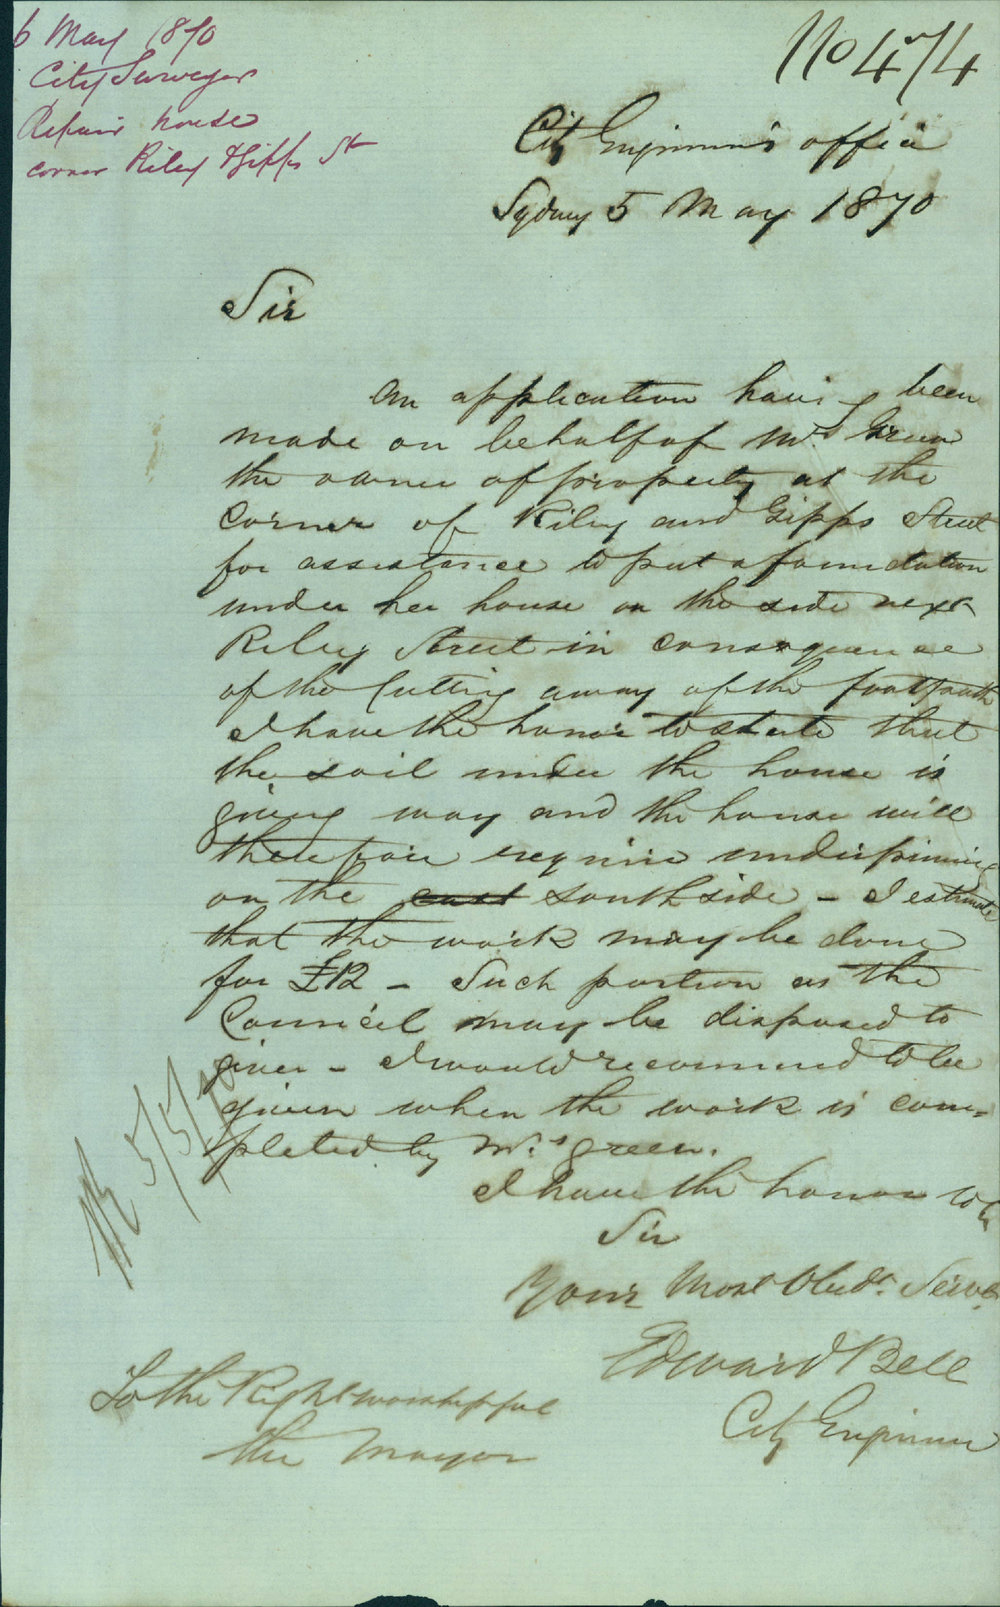 6 May 1870
City Surveyor
Repair house
corner Riley & Gipps St
No 474
City Engineer's office
Sydney 5 May 1870
Sir
An application having been
made on behalf of Mrs Green
the owner of property at the
Corner of Riley and Gipps Street
for assistance to put a foundation
under her house on the side next
Riley Street in consequence
of the Cutting away of the footpath
I have the honor to state that
the soil under the house is
giving way and the house will
therefore require underpinning
on the east south side - I estimate
that the work may be done
for £12 - Such portion as the
Council may be disposed to
give - I would recommend to be
given when the work is com=
pleted by Mrs Green.
I have the honor to be
Sir
Your Most Obedt. Servt
Edward Bell
City Engineer
To the Right worshipful
the Mayor
5/5/70